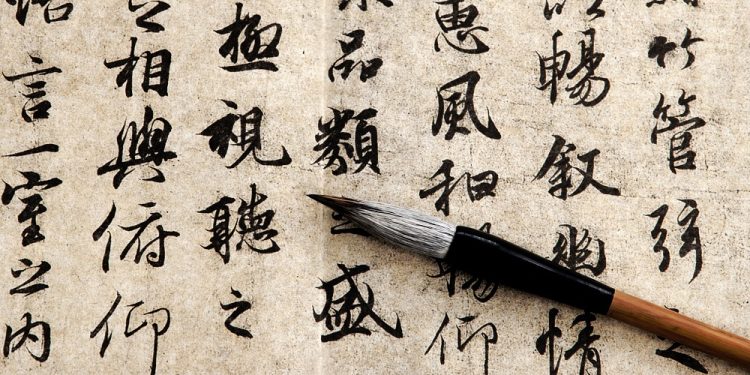 竹管弦之
暢叙幽情
惠風和暢仰
品類之盛
極視聽之
之相與俯仰
言一室之内